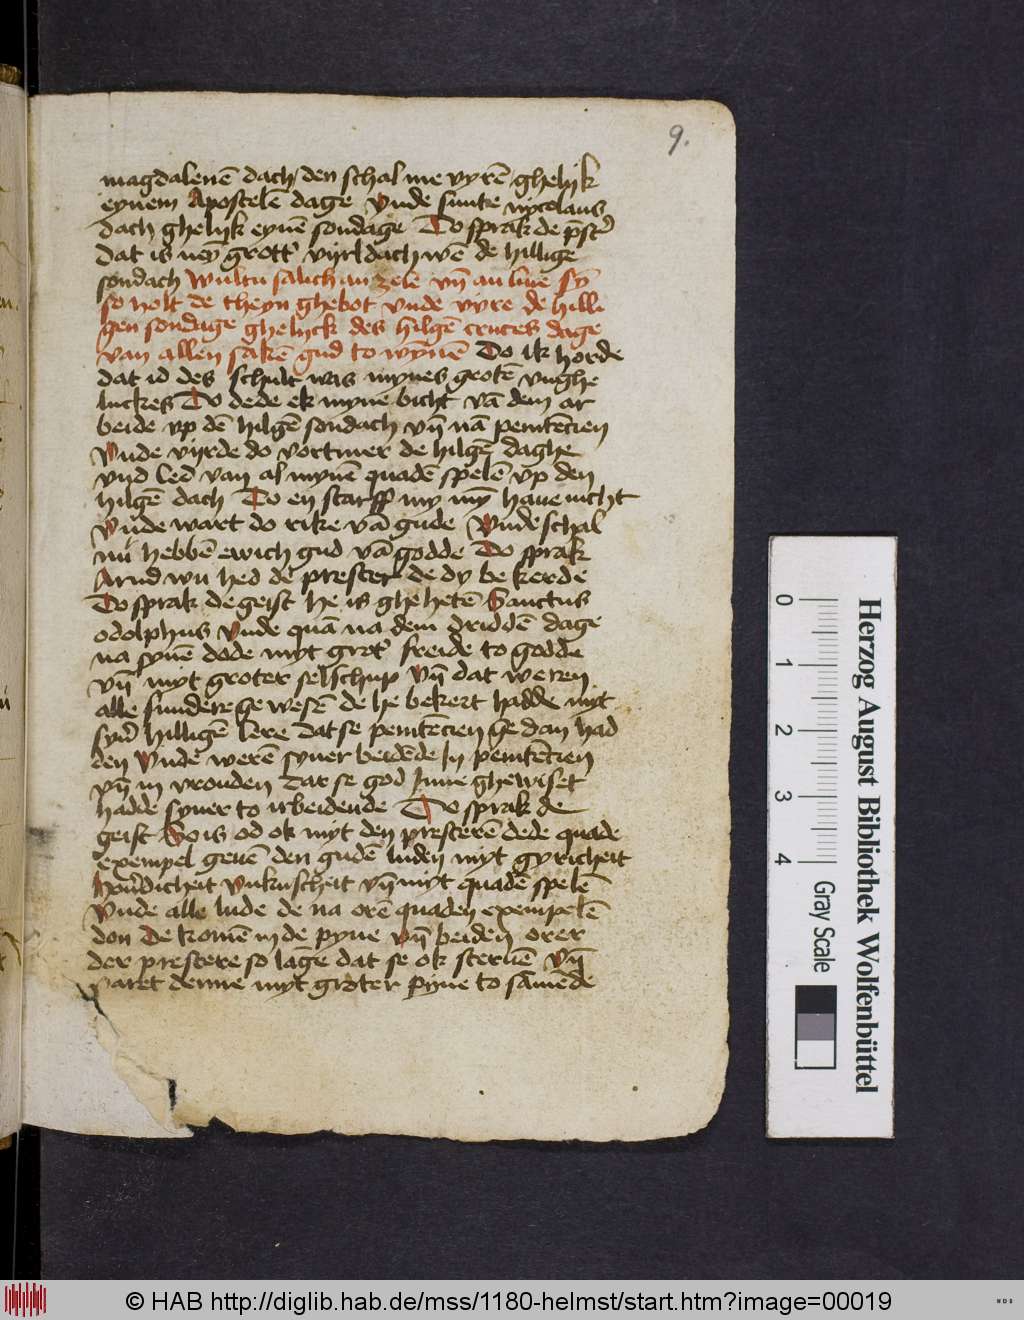 9.
magdalenē dach den schal me vyrē ghelijk
eynem Apostelē dage Vnde sunte nycolaus
dach ghelijk eynē sondage Do sprak de p̄st'
dat is neȳ grott' vijrldach wē de hillige
sondach Wultu salich an zele vn̄ an liue sȳ
so holt de theyn ghebot vnde vyre de hilli
gen sondage ghelijck des hilgē cruces dage
van allen sakē gud to wȳnē Do ik horde
dat id des schult was mynes grotē vnghe
luckes Do dede ek myne bicht vā dem ar
beide vp dē hilgē sondach vn̄ nā penitēcien
Vnde vijrde do vortmer de hilgē daghe
vnd led van al mynē quadē spelē vp den
hilgē dach Do en starff my mȳ haue nicht
Vnde wart do rike vā gude Vnde schal
nu hebbē ewich gud vā godde Do sprak
Arnd wu hed de prester de dy bekerde
Do sprak de geist he is ghehetē Sanctus
odolphus Vnde quā na dem driddē dage
na synē dode myt grot' freide to godde
vn̄ myt groter selschup Vn̄ dat weren
alle sundere gewesē de he bekert hadde myt
syn' hilligē lere Dat se penitēcien gedan had
den Vnde werē syner beidēde In penitēcien
vn̄ in vrouden Dat se god June ghewiset
hadde syner to irbeidende Do sprak de
geist So is od ok myt den presterē dede quade
exempel geuē den gudē luden myt gyricheit
houerdicheit Vnkuscheit vn̄ myt quadē spelē
Vnde alle lude de na orē quaden exempelē
don De komē in de pyne vn̄ beiden orer
der prestere so lāge dat se ok steruē Vn̄
varet denne myt groter pyne to sāmēde
0 1 2 3 4
Gray Scale
Herzog August Bibliothek Wolfenbüttel
© HAB http://diglib.hab.de/mss/1180-helmst/start.htm?image=00019